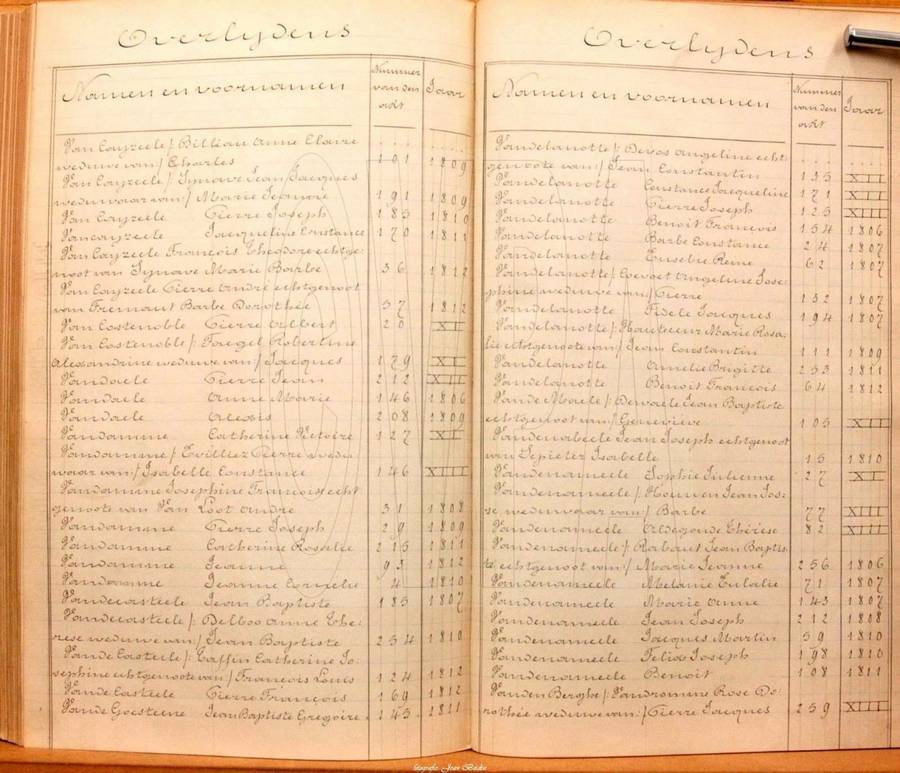 Overlydens
Namen en voornamen
Nummer van den akt
Jaar
Van Cayzeele /: Billiau Anne Claire
weduwe van :/ Charles 101 1809
Van Cayzeele /: Synave Jean Jacques
weduwaar van :/ Marie Jeanne 191 1809
Van Cayzeele Pierre Joseph 183 1810
Vancayzeele Jacqueline Constance 170 1811
Van Cayzeele François Théodore echtge-
noot van Synave Marie Barbe 36 1812
Van Cayzeele Pierre André echtgenoot
van Fremaut Barbe Dorothée 37 1812
Van Costenoble Pierre Albert 20 XI
Van Costenoble /: Robertine
Alexandrine weduwe van :/ Jacques 179 XI
Vandaele Pierre Jean 212 XIII
Vandaele Anne Marie 146 1806
Vandaele Alexis 208 1809
Vandamme Catherine Victoire 127 XI
Vandamme /: Pierre wedu-
waar van :/ Isabelle Constance 146 XIII
Vandamme Josephine Françoise echt-
genoote van Van Loot André 31 1808
Vandamme Pierre Joseph 29 1809
Vandamme Catherine Rosalie 215 1811
Vandamme Jeanne 93 1812
Vandamme Jeanne 4 1810
Vandecasteele Jean Baptiste 185 1807
Vandecasteele /: Delboo Anne Thé-
rèse weduwe van :/ Jean Baptiste 254 1810
Van de Casteele /: Caffin Catherine Jo-
sephine echtgenoote van :/ François Louis 124 1812
Van de Casteele Pierre François 169 1812
Van de Goesteene Jean Baptiste Grégoire 145 1811
Overlydens
Namen en voornamen
Nummer van den akt
Jaar
Vandelanotte /: Devos Angeline echt-
genoote van :/ Jean Constantin 135 XII
Vandelanotte Constance Jacqueline 171 XII
Vandelanotte Pierre Joseph 125 XIII
Vandelanotte Benoit François 154 1806
Vandelanotte Barbe Constance 24 1807
Vandelanotte Eusebie Reine 62 1807
Vandelanotte /: Coevoet Angeline Jose-
phine weduwe van :/ Pierre 132 1807
Vandelanotte Fidele Jacques 194 1807
Vandelanotte /: Hautecoeur Marie Rosa-
lie echtgenoote van :/ Jean Constantin 111 1809
Vandelanotte Amelie Brigitte 253 1811
Vandelanotte Benoit François 64 1812
Van de Maele /: Devaele Jean Baptiste
echtgenoot van :/ Geneviève 105 XII
Vandenabeele Jean Joseph echtgenoot
van Lepieter Isabelle 15 1810
Vandenameele Sophie Julienne 27 XI
Vandenameele /: Houven Jean Jos-
se weduwaar van :/ Barbe 77 XIII
Vandenameele Aldegonde Thérèse 82 XIII
Vandenameele /: Rabaut Jean Baptis-
te echtgenoot van :/ Marie Jeanne 256 1806
Vandenameele Melanie Eulalie 71 1807
Vandenameele Marie Anne 143 1807
Vandenameele Jean Joseph 212 1808
Vandenameele Jacques Martin 59 1810
Vandenameele Felix Joseph 198 1810
Vandenameele Benoit 108 1811
Van den Berghe /: Vandromme Rose Do-
rothée weduwe van :/ Pierre Jacques 259 XIII
fotografie Jean Baidin